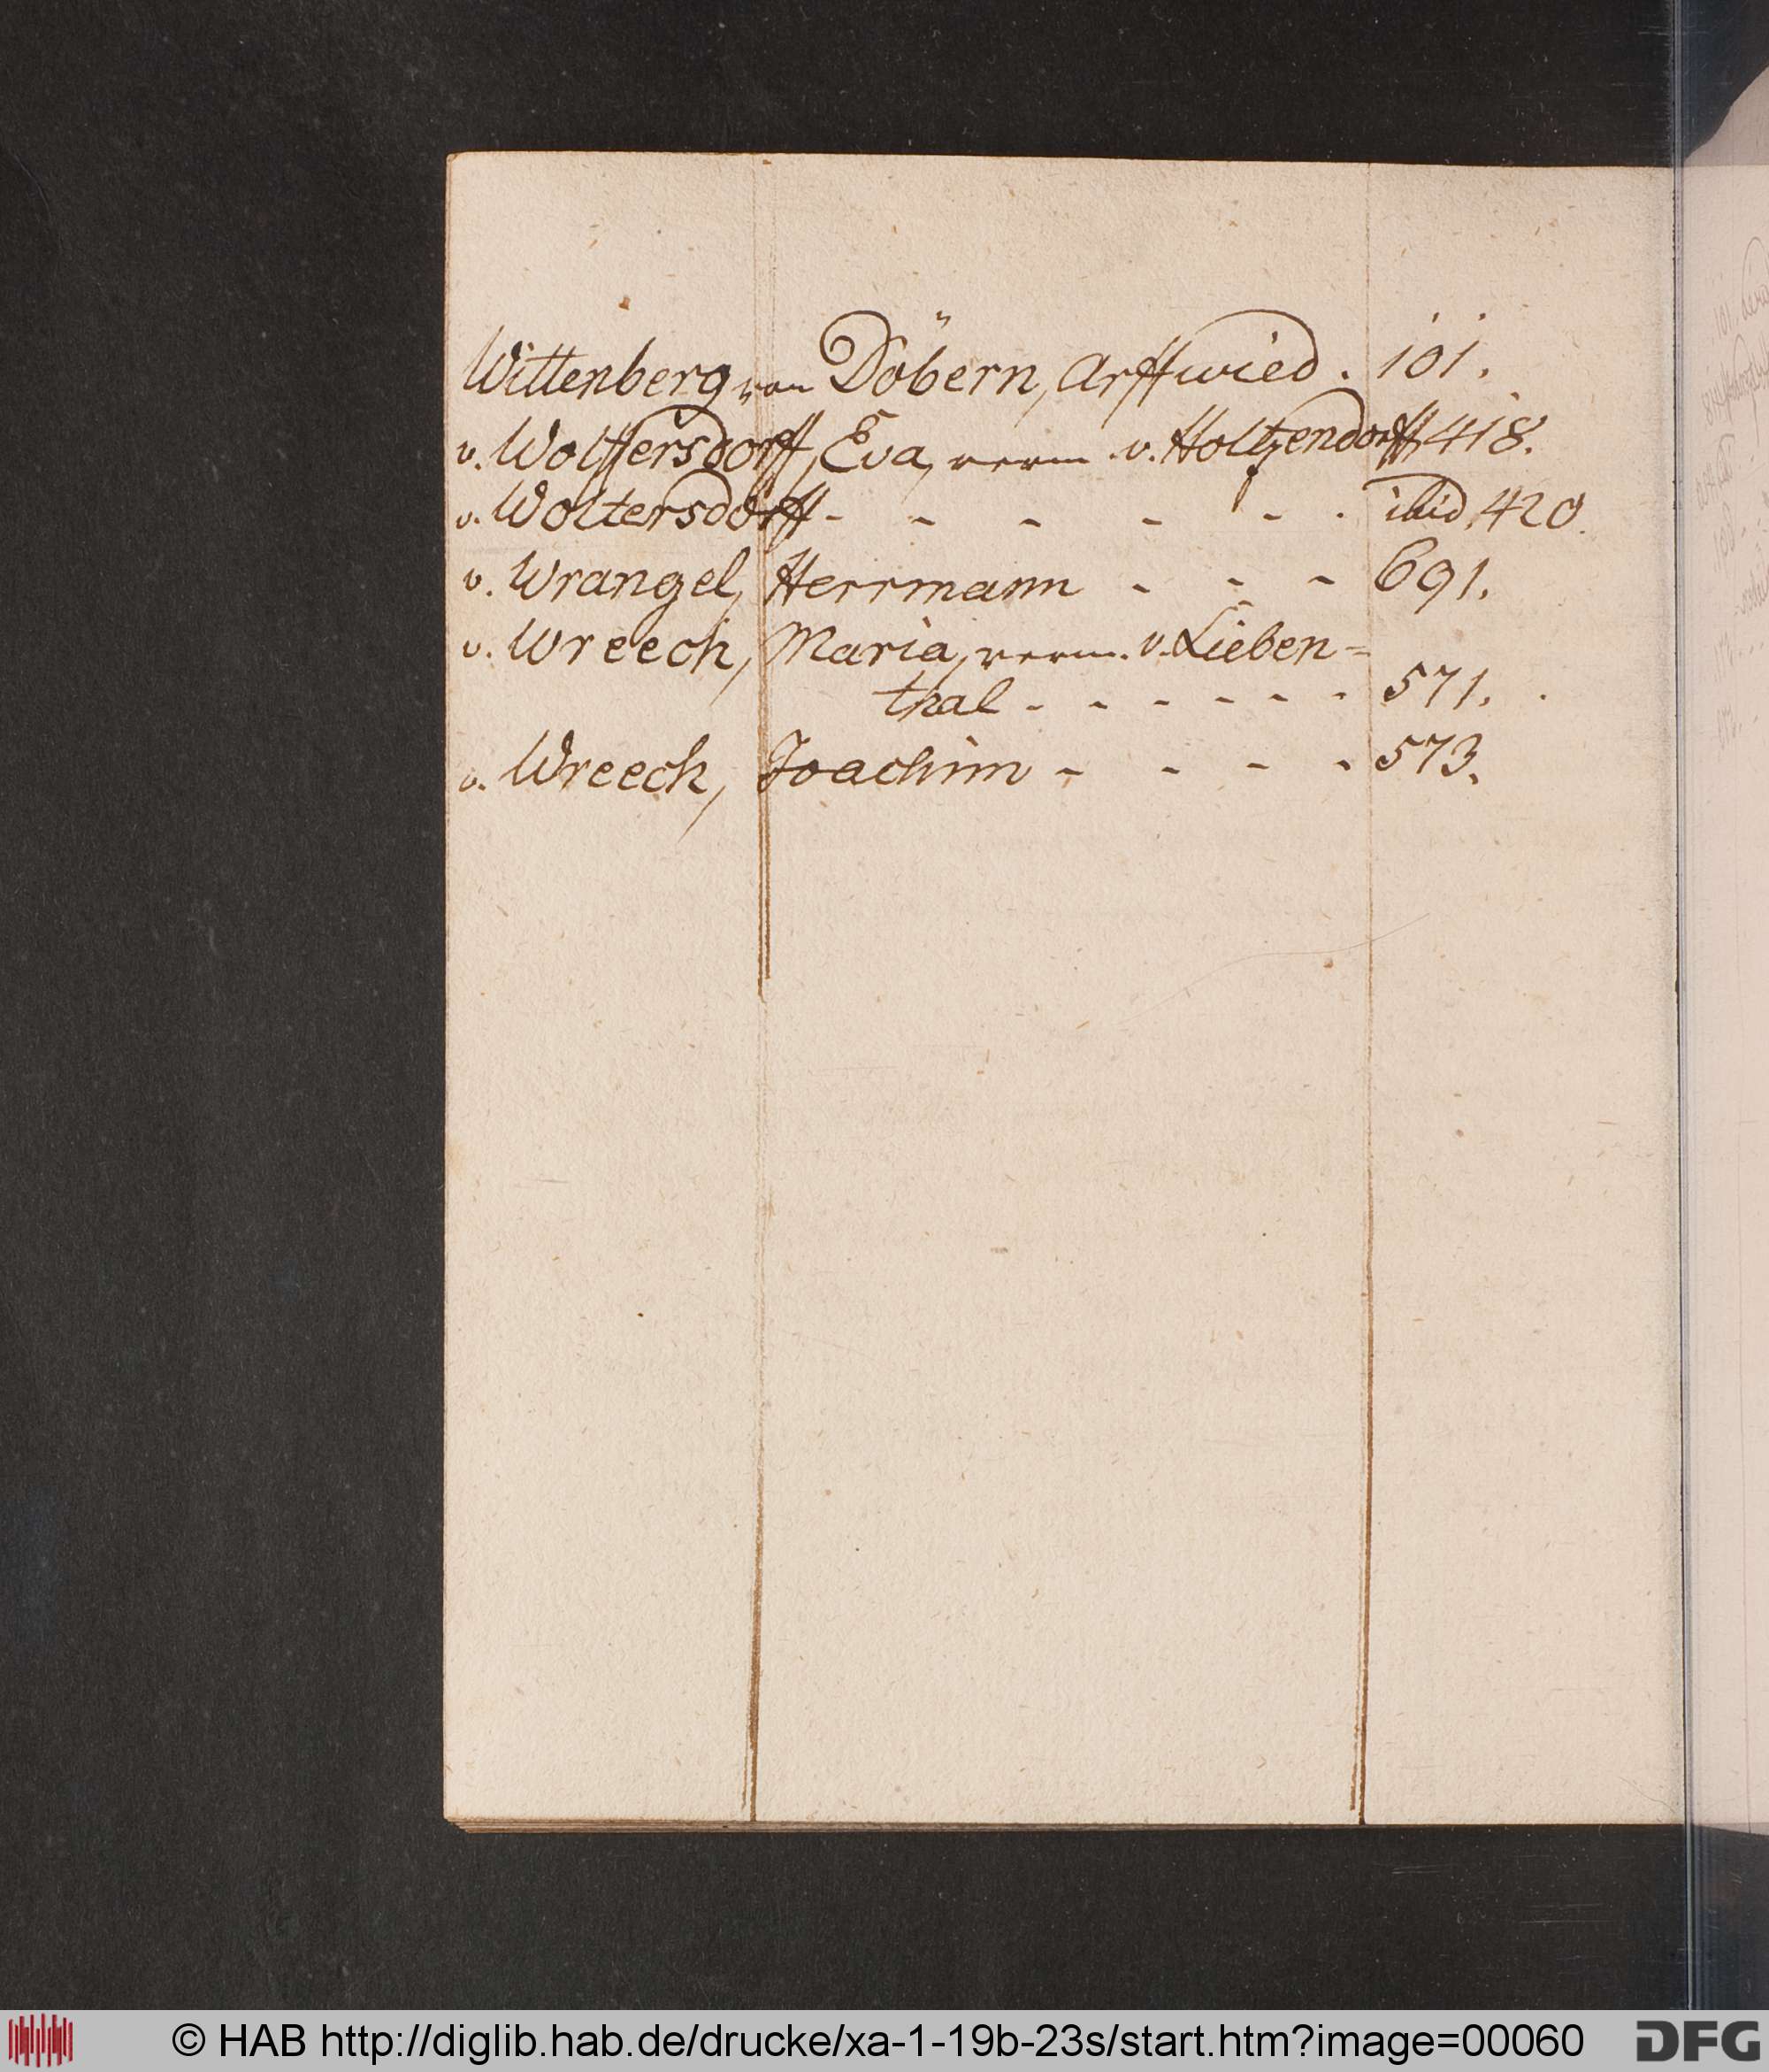 Wittenberg von Döbern, Arffwied . 101.
v. Wolffersdorff, Eva, verm. v. Holtzendorff, 418.
v. Woltersdorff - - - - - . ibid, 420.
v. Wrangel, Herrmann - - - 691.
v. Wreech, Maria, verm. v. Lieben=
thal - - - - - - 571.
v. Wreech, Joachim - - - - 573.
© HAB http://diglib.hab.de/drucke/xa-1-19b-23s/start.htm?image=00060 DFG